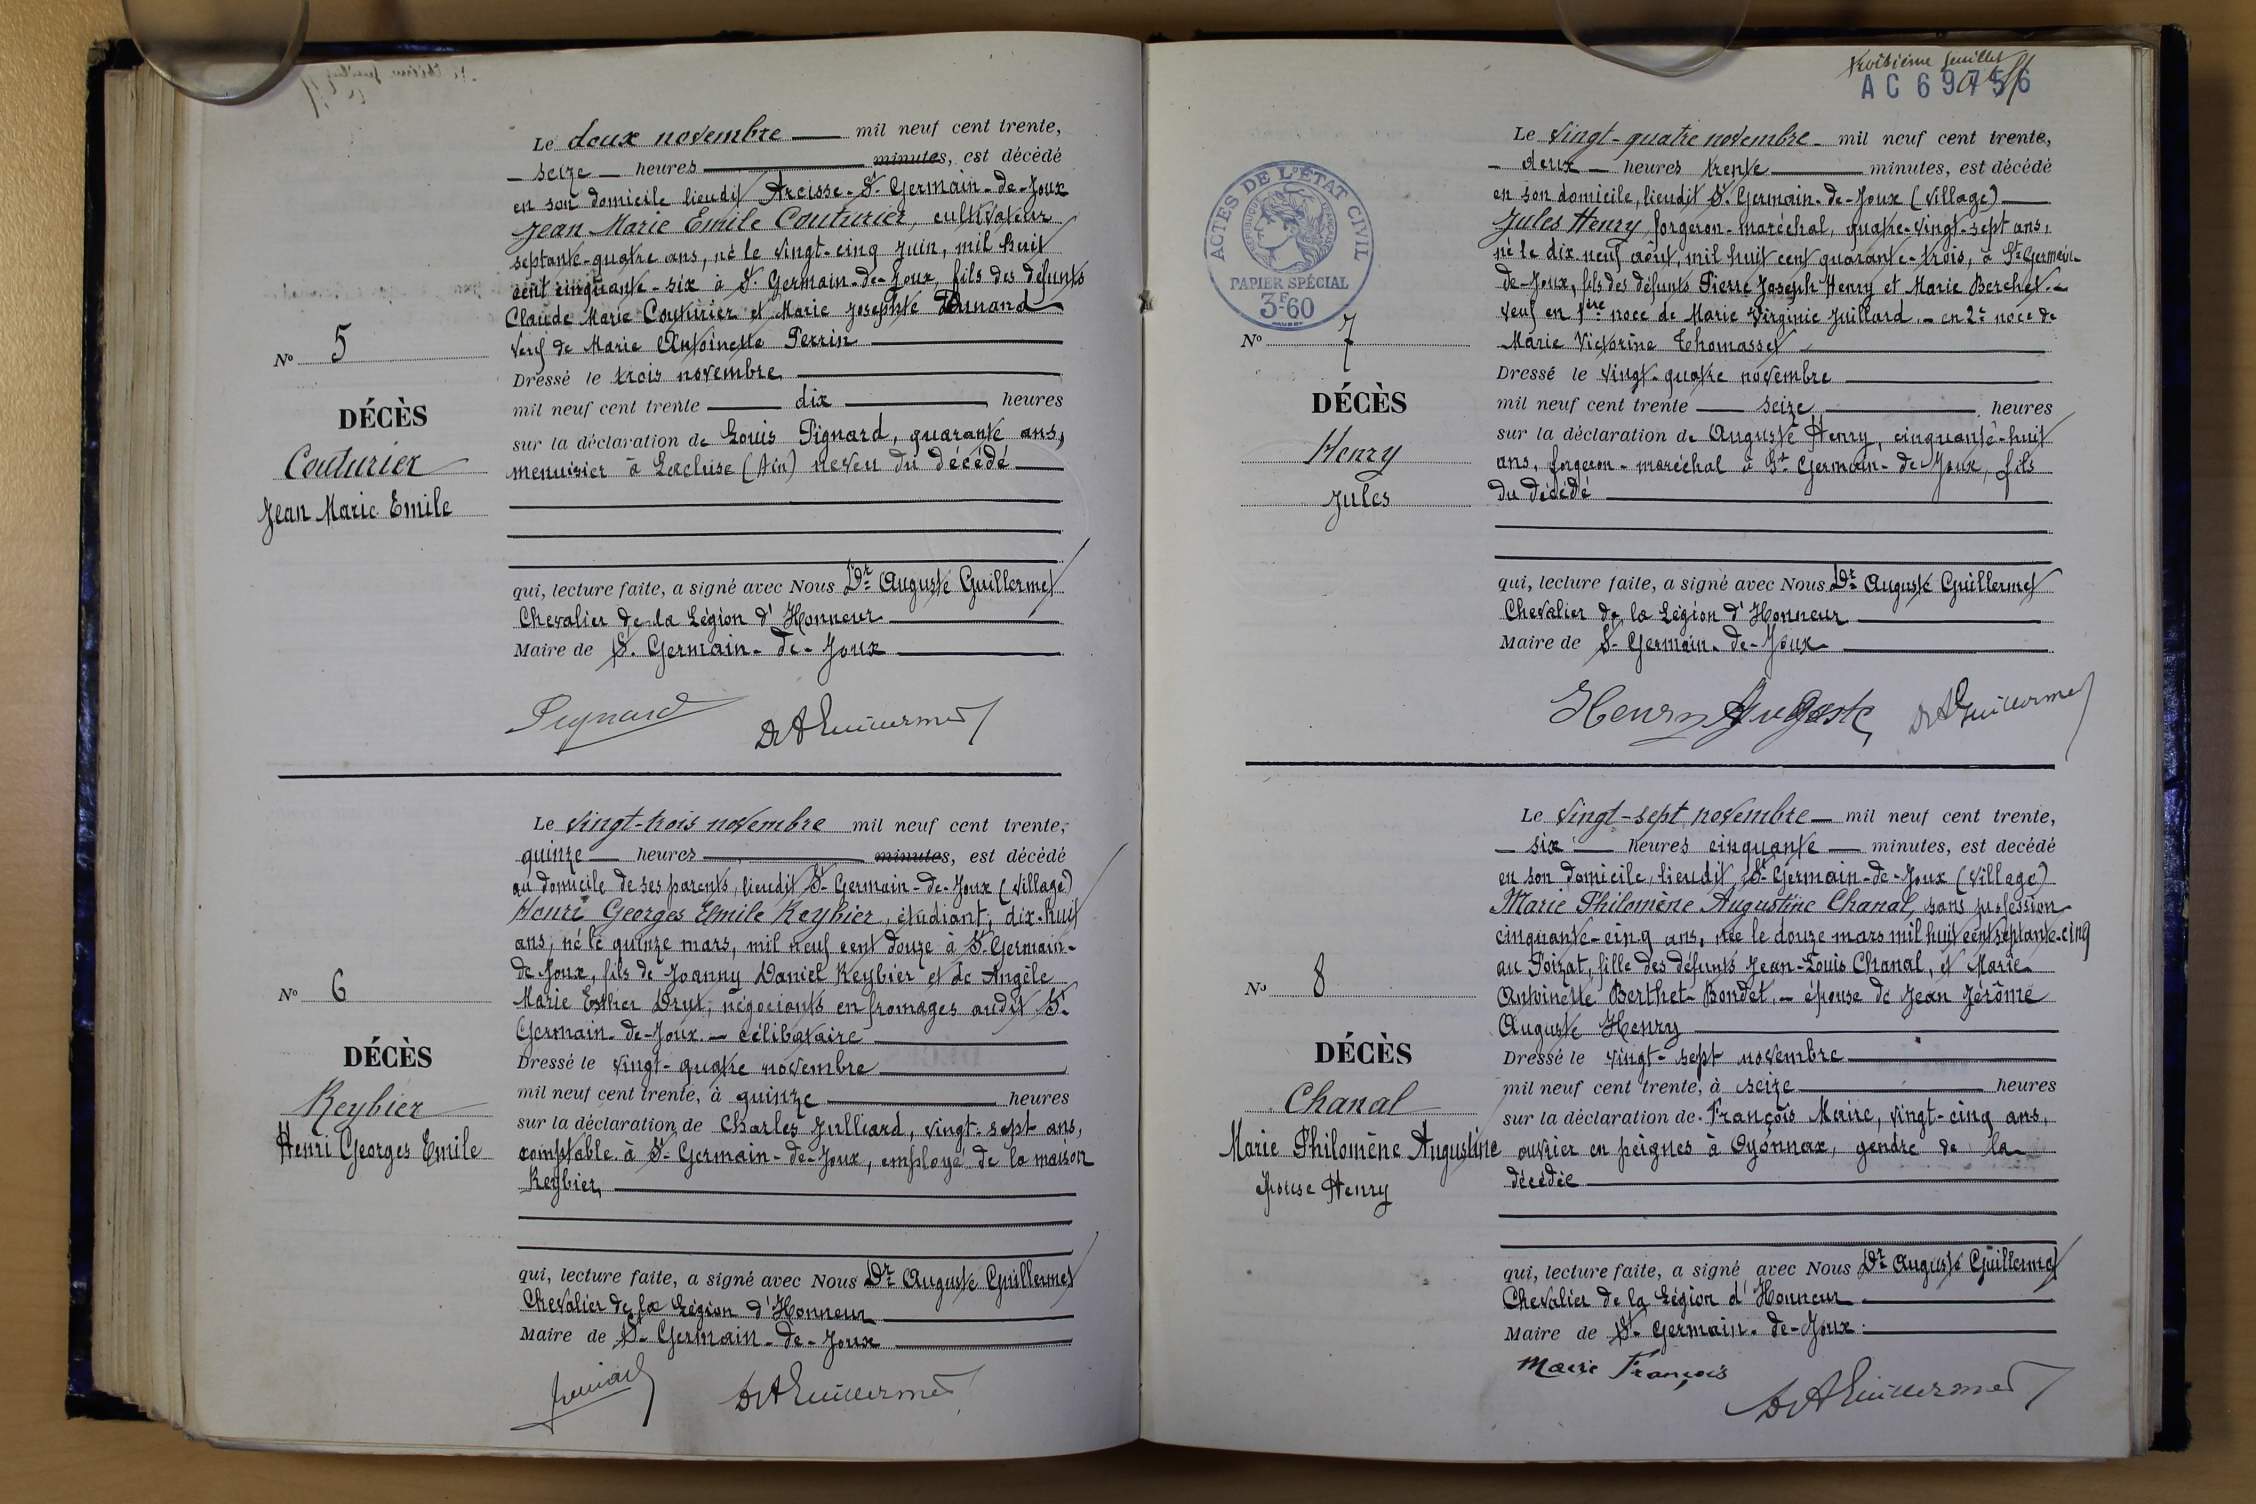 Le deux novembre mil neuf cent trente,
seize heures minutes, est décédé
en son domicile lieudit Arcisse - St Germain-de-Joux
Jean Marie Emile Couturier, cultivateur
septante-quatre ans, né le vingt-cinq Juin, mil huit
cent cinquante-six à St Germain-de-Joux, fils des défunts
Claude Marie Couturier et Marie Josephte
Veuf de Marie Antoinette Perrin
Dressé le trois novembre
mil neuf cent trente dix heures
sur la déclaration de Louis Pignard, quarante ans,
menuisier à Lécluse (Ain) neveu du décédé
qui, lecture faite, a signé avec Nous Dr Auguste Guillermet
Chevalier de la Légion d'Honneur
Maire de St Germain-de-Joux
No 5
DÉCÈS
Couturier
Jean Marie Emile
Pignard
Dr A Guillermet
Le vingt-trois novembre mil neuf cent trente,
quinze heures minutes, est décédé
au domicile de ses parents, lieudit St Germain-de-Joux (Village)
Henri Georges Emile Reybier, étudiant, dix-huit
ans, né le quinze mars, mil neuf cent douze à St Germain-
de Joux, fils de Joanny Daniel Reybier et de Angèle
Marie Esther Drut, négociants en fromages audit St
Germain-de-Joux. - célibataire
Dressé le vingt-quatre novembre
mil neuf cent trente, à quinze heures
sur la déclaration de Charles Julliard, vingt-sept ans,
comptable à St Germain-de-Joux, employé de la maison
Reybier
qui, lecture faite, a signé avec Nous Dr Auguste Guillermet
Chevalier de la Légion d'Honneur
Maire de St Germain-de-Joux
No 6
DÉCÈS
Reybier
Henri Georges Emile
Dr A Guillermet
troisième feuillet
AC 69756
ACTES DE L'ÉTAT CIVIL
RÉPUBLIQUE FRANÇAISE
PAPIER SPÉCIAL
3F60
Le Vingt-quatre novembre mil neuf cent trente,
deux heures trente minutes, est décédé
en son domicile, lieudit St Germain-de-Joux (Village)
Jules Henry, forgeron-maréchal, quatre-vingt-sept ans,
né le dix neuf août, mil huit cent quarante-trois, à St Germain
de-Joux, fils des défunts Pierre Joseph Henry et Marie Berchet. -
Veuf en 1ère noce de Marie Virginie Juillard - en 2e noce de
Marie Victorine Thomasset
Dressé le vingt-quatre novembre
mil neuf cent trente seize heures
sur la déclaration de Auguste Henry, cinquante-huit
ans, forgeron-maréchal à St Germain-de-Joux, fils
du décédé
qui, lecture faite, a signé avec Nous Dr Auguste Guillermet
Chevalier de la Légion d'Honneur
Maire de St Germain-de-Joux
No 7
DÉCÈS
Henry
Jules
Henry Auguste
Dr A Guillermet
Le Vingt-sept novembre mil neuf cent trente,
six heures cinquante minutes, est decédé
en son domicile, lieudit, St Germain-de-Joux (Village)
Marie Philomène Augustine Chanal, sans profession
cinquante-cinq ans, née le douze mars mil huit cent septante-cinq
au Poizat, fille des défunts Jean-Louis Chanal, et Marie
Antoinette Berthet-Bondet, - épouse de Jean Jérôme
Auguste Henry
Dressé le vingt-sept novembre
mil neuf cent trente, à seize heures
sur la déclaration de François Maire, vingt-cinq ans,
ouvrier en peignes à Oyonnax, gendre de la
décédée
qui, lecture faite, a signé avec Nous Dr Auguste Guillermet
Chevalier de la Légion d'Honneur
Maire de St Germain-de-Joux
No 8
DÉCÈS
Chanal
Marie Philomène Augustine
épouse Henry
Maire François
Dr A Guillermet